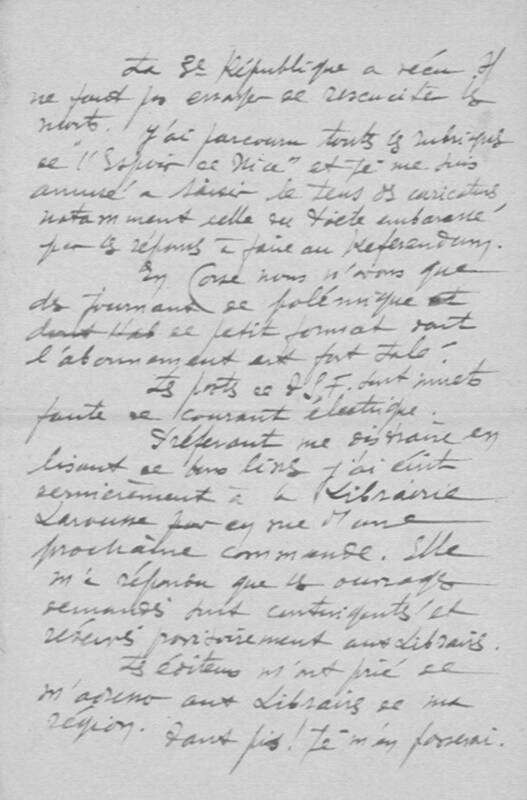 La 3e République a vécu. Il
ne faut pas essayer de rescuciter les
morts. J'ai parcouru toutes les rubriques
de "l'Espoir de Nice" et je me suis
amusé à saisir le sens des caricatures
notamment celle du poète embarassé
par les réponses à faire au Referendum.
En Corse nous n'avons que
des journaux de polémique et
dont l'ab de petit format dont
l'abonnement est fort salé.
Les postes de T.S.F. sont muets
faute de courant électrique.
Préférant me distraire en
lisant de bons livres j'ai écrit
dernièrement à la Librairie
Larousse par en vue d'une
prochaine commande. Elle
m'a répondu que les ouvrages
demandés sont contingentés et
réservés provisoirement aux Libraires.
Les éditeurs m'ont prié de
m'adresser aux Libraires de ma
région.
Tant pis! Je m'en passerai.